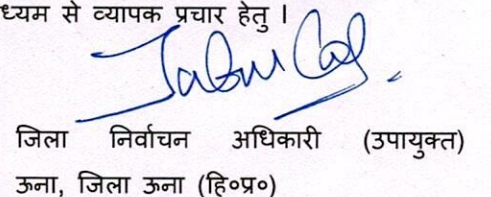 ध्यम से व्यापक प्रचार हेतु ।
जिला निर्वाचन अधिकारी (उपायुक्त)
ऊना, जिला ऊना (हि०प्र०)